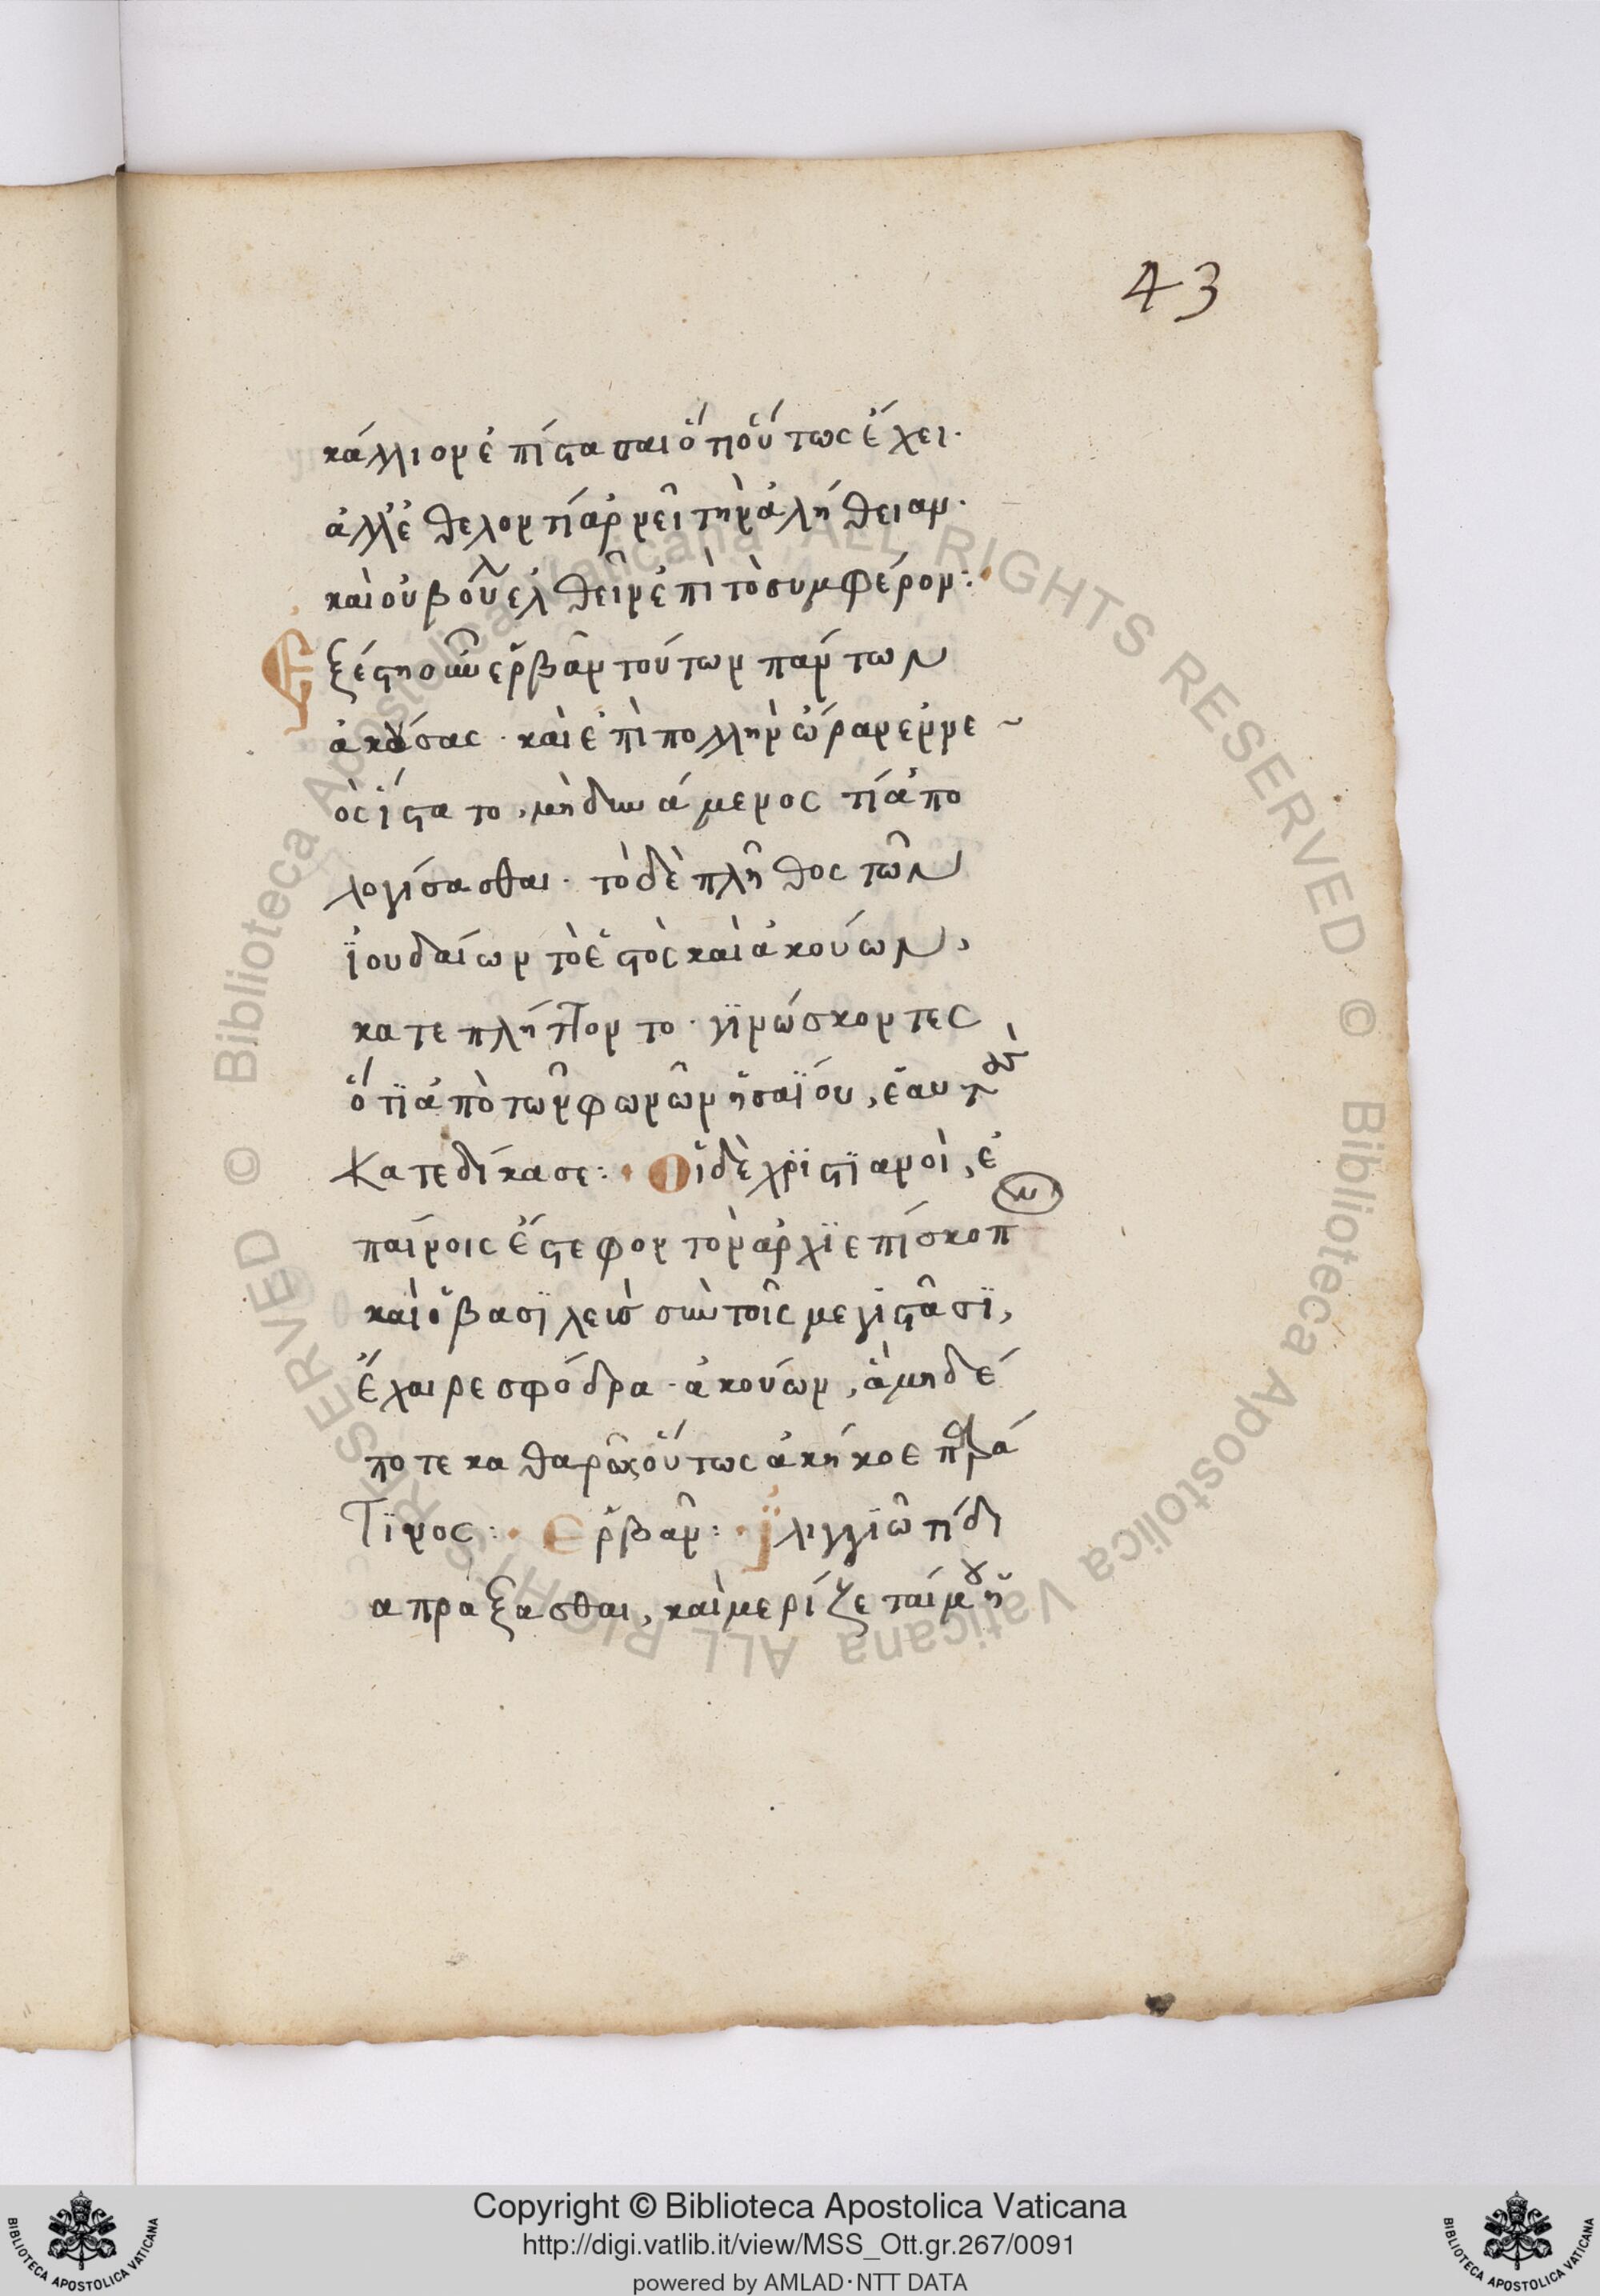 43
κάλλιον ἐπίστασαι ὅτι οὕτως ἔχει·
ἀλλ' ἐθελοντὶ ἀρνεῖ τὴν ἀλήθειαν·
καὶ οὐ βούλ ἐλθεῖν ἐπὶ τὸ συμφέρον:
Ἐξέστη οὖν ἑρβᾶν τούτων πάντων
ἀκούσας · καὶ ἐπὶ πολλὴν ὥραν ἐννε
ὸς ἵστατο, μὴ δυνάμενος τί ἀπο
λογίσασθαι · τὸ δὲ πλῆθος τῶν
ἰουδαίων τὸ ἑστὸς καὶ ἀκούων,
κατεπλήττοντο · γϊνώσκοντες
ὅτϊ ἀπὸ τῶν φωνῶν ἡσαΐου, ἑαυτ
κατεδίκασε: Οἱ δὲ χρϊστϊανοὶ, ἐ
παίνοις ἔστεφον τὸν ἀρχϊεπίσκοπ
καὶ ὁ βασϊλεὺς σὺν τοῖς μεγϊστᾶσϊ,
ἔχαιρε σφόδρα · ἀκούων, ἃ μηδέ
ποτε καθαρῶς οὕτως ἀκήκοε
τϊνος: Ἑρβᾶν: ἰλιγγϊῶ τί δι
απράξασθαι, καὶ μερίζεταί μου ἡ
Copyright © Biblioteca Apostolica Vaticana
http://digi.vatlib.it/view/MSS_Ott.gr.267/0091
powered by AMLAD·NTT DATA
BIBLIOTECA APOSTOLICA VATICANA
BIBLIOTECA APOSTOLICA VATICANA
© Biblioteca Apostolica Vaticana ALL RIGHTS RESERVED © Biblioteca Apostolica Vaticana ALL RIGHTS RESERVED